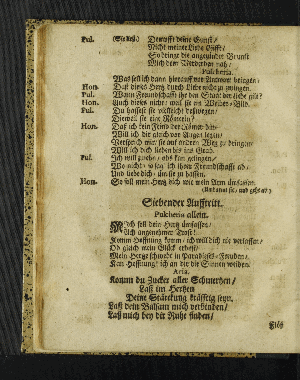 Pul. (Sie lieſt.) Demuſſt deine Gunſt/
Nicht meiner Liebe
So dringe die angezündte Brunſt
Mich dem Verderben nah/
Pulcheria.
Was ſoll ich dann hierauff vor Antwort bringen/
Hon. Daß dieſes Hertz durch Liebe nicht zu zwingen.
Pul. Wann Freundſchafft ihr den Staat der Liebe gibt?
Hon. Auch dieſes nicht/ weil ſie ein Weiber-Bild.
Pul. Du haſſeſt ſie vielleicht deßwegen/
Dieweil ſie eine Römerin?
Hon. Daß ich kein Feind der Römer bin/
Will ich dir gleich vor Augen legen/
Verſprich mir/ ſie auf andern Weg zu bringen/
Will ich dich lieben biß ins Grab.
Pul. Ich will zuſehn/ obs kan gelingen/
Wo nicht/ ſo ſag ich ihrer Freundſchafft ab/
Und liebe dich/ um ſie zu haſſen.
Hon. So ſoll mein Hertz dich wie mein Arm umfaſſen.
und geht ab)
Siebender Aufftritt.
Pulcheria allein.
Mich ſoll dein Hertz umfaſſen/
Ach angenehmer Troſt!
Komm Hoffnung komm/ ich will dich nie verlaſſen/
Ob gleich mein Glück erboſt/
Mein Hertze ſchwebt in Paradieſes-Freuden/
Kan Hoffnung ich an dir die Sinnen weiden.
Aria.
Komm du Zucker aller Schmertzen/
Laſt im Hertzen
Deine Stärckung kräfftig ſeyn.
Laß dein Balſam mich verbinden/
Laß mich bey dir Ruhe finden/